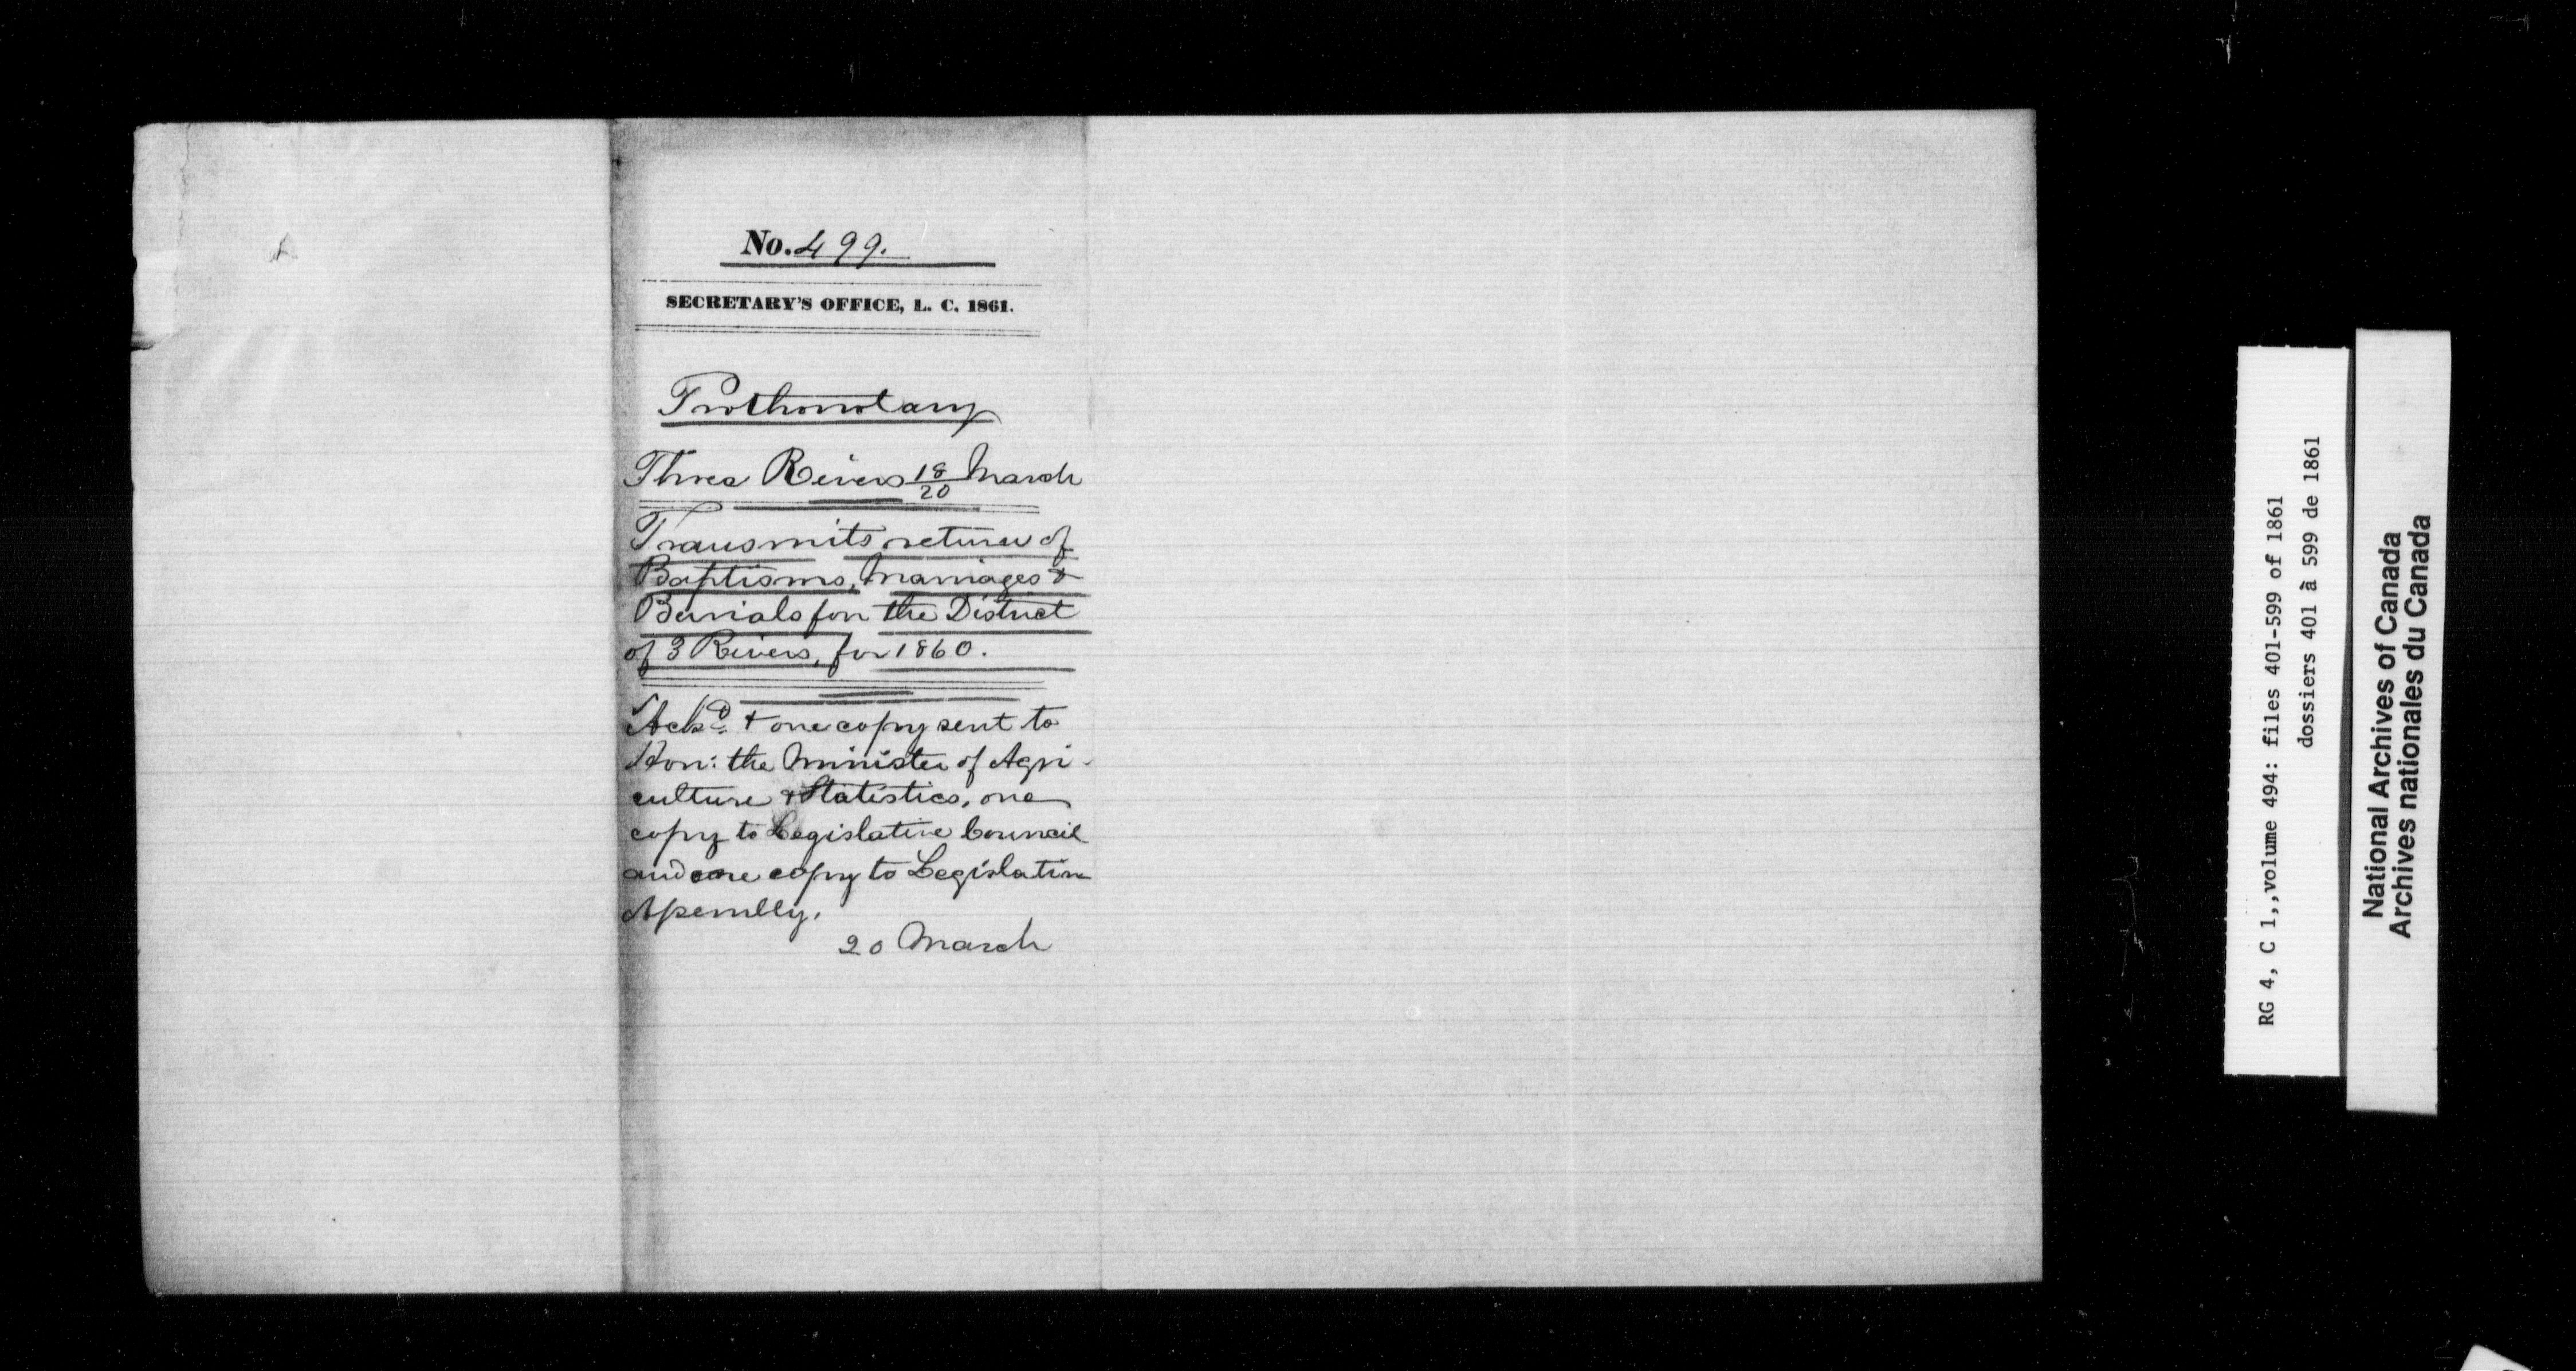 No. 499.
SECRETARY'S OFFICE, L. C. 1861.
Prothonotary
Three Rivers 18/20 March
Transmits return of
Baptisms, Marriages &
Burials for the District
of 3 Rivers, for 1860.
Ackd. & one copy sent to
Hon: the Minister of Agri-
culture & Statistics, one
copy to Legislative Council
and one copy to Legislative
Assembly.
20 March
RG 4, C 1,,volume 494: files 401-599 of 1861
dossiers 401 à 599 de 1861
National Archives of Canada
Archives nationales du Canada